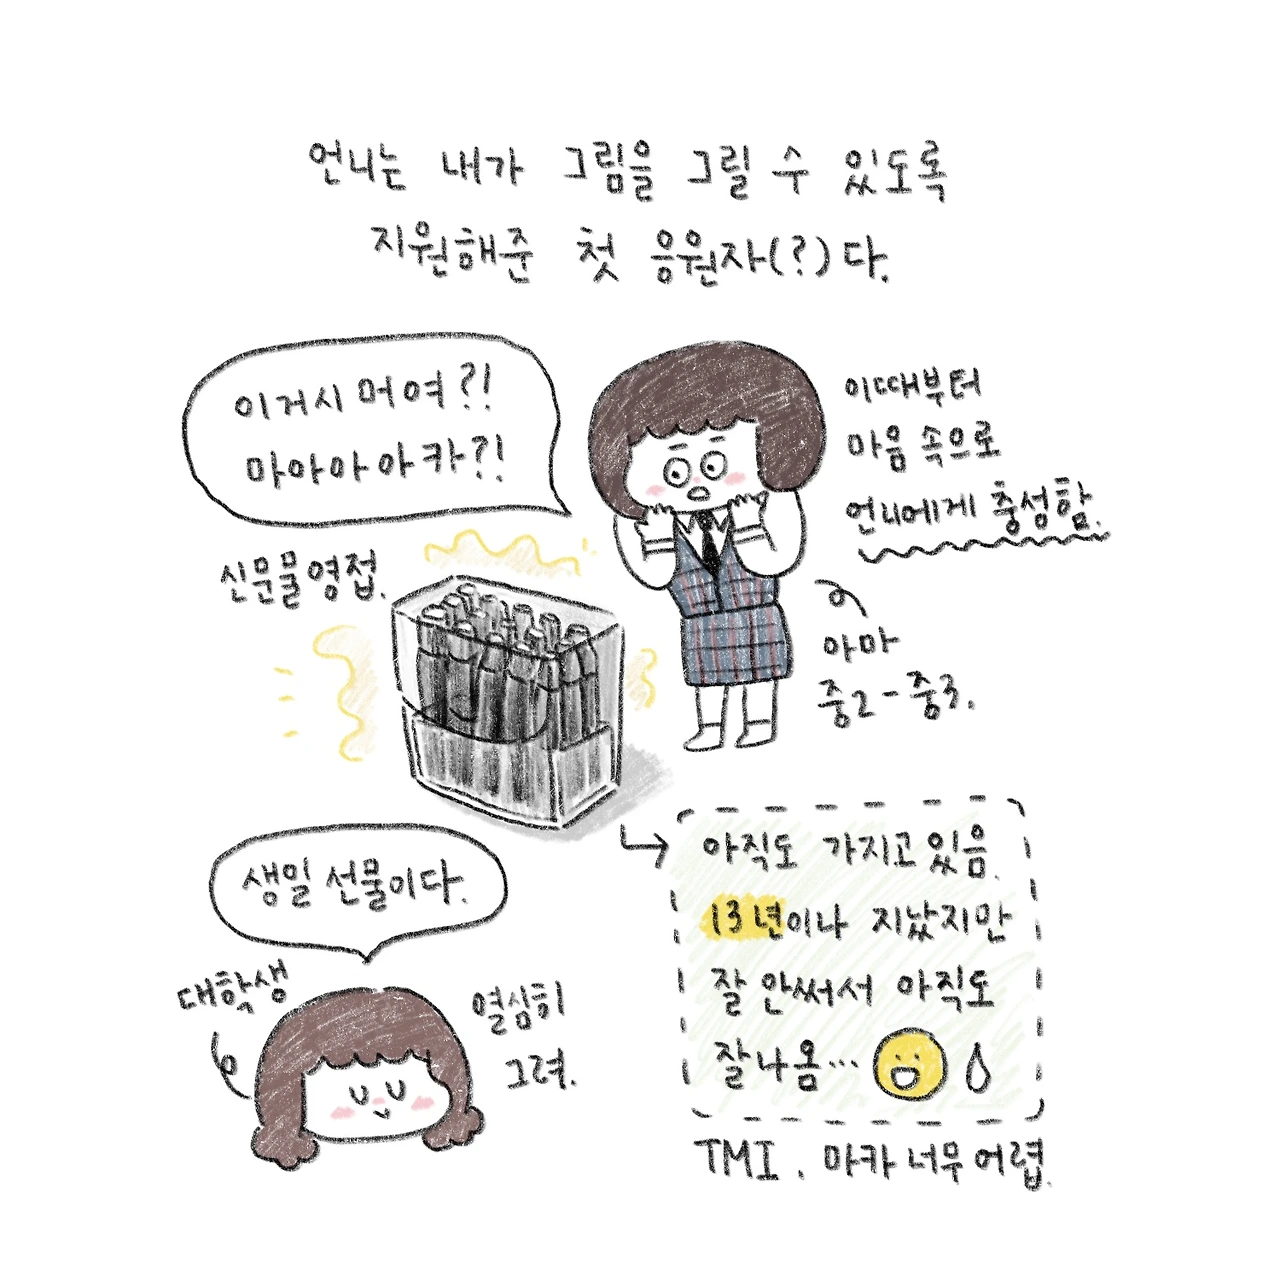 언니는 내가 그림을 그릴 수 있도록
지원해준 첫 응원자(?)다.
이거시 머여?!
마아아아카?!
이때부터
마음 속으로
언니에게 충성함.
신문물영접.
아마
중2-중3.
생일 선물이다.
대학생
열심히
그려.
아직도 가지고있음.
13년이나 지났지만
잘 안써서 아직도
잘나옴...
TMI. 마카 너무 어렵.